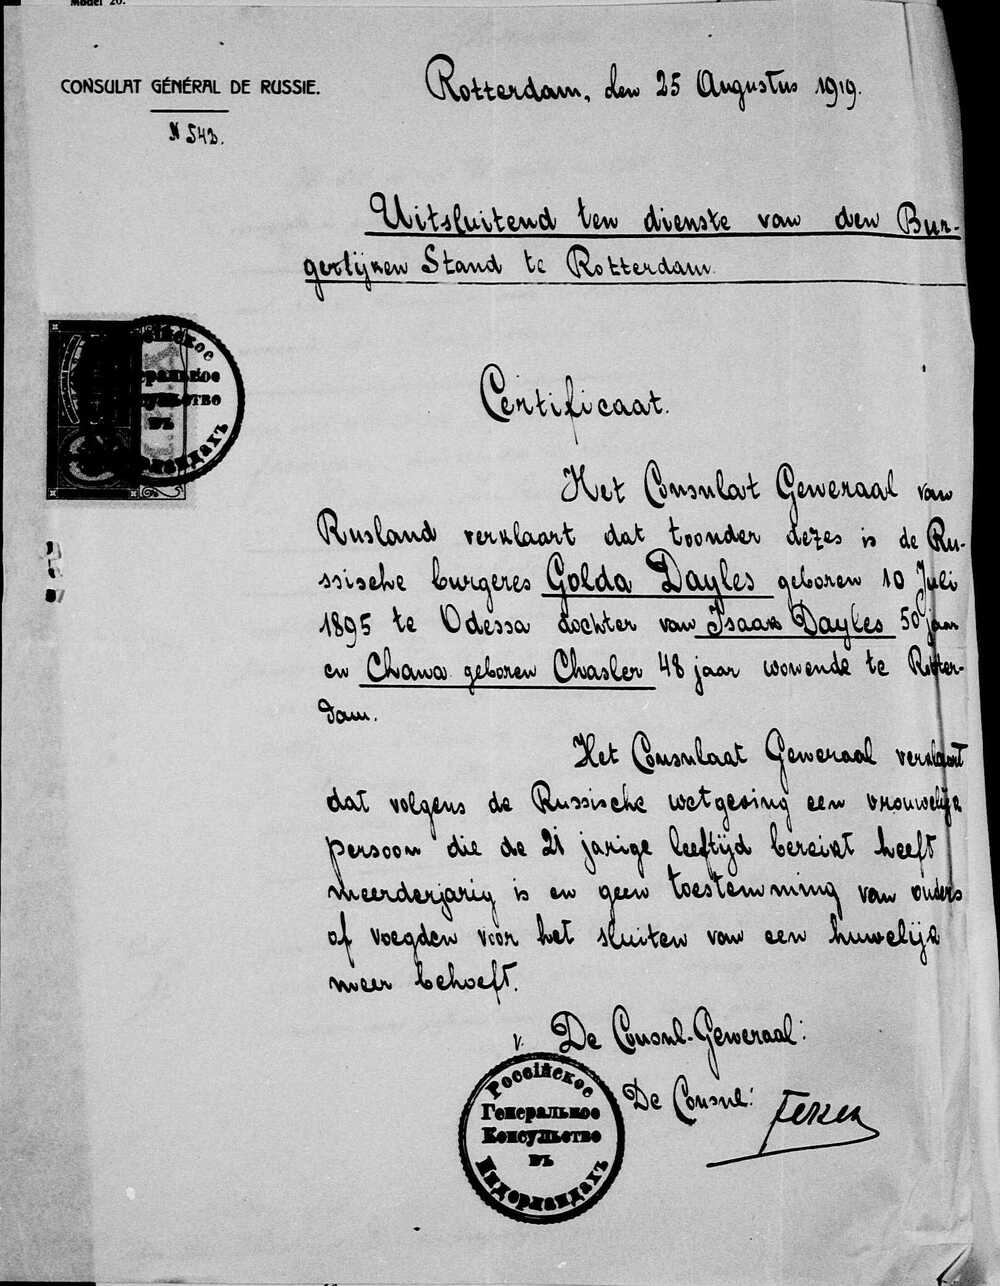 Model 20.
CONSULAT GÉNÉRAL DE RUSSIE.
Rotterdam, den 25 Augustus 1919.
N 543.
Uitsluitend ten dienste van den Bur-
gerlijken Stand te Rotterdam.
Certificaat.
Het Consulat Generaal van
Rusland verklaart dat toonder dezes is de Ru-
ssische burgeres Golda Dayles geboren 10 Juli
1895 te Odessa dochter van Isaak Dayles 50 jaar
en Chawa geboren Chasler 48 jaar wonende te Rotter-
dam.
Het Consulaat Generaal verklaart
dat volgens de Russische wetgeving een vrouwelijk
persoon die de 21 jarige leeftijd bereikt heeft
meerderjarig is en geen toestemming van ouders
of voegden voor het sluiten van een huwelijk
meer behoeft.
v. De Consul-Generaal:
De Consul:
Россiйское
Генеральное
Консульство
въ
Нидерландахъ